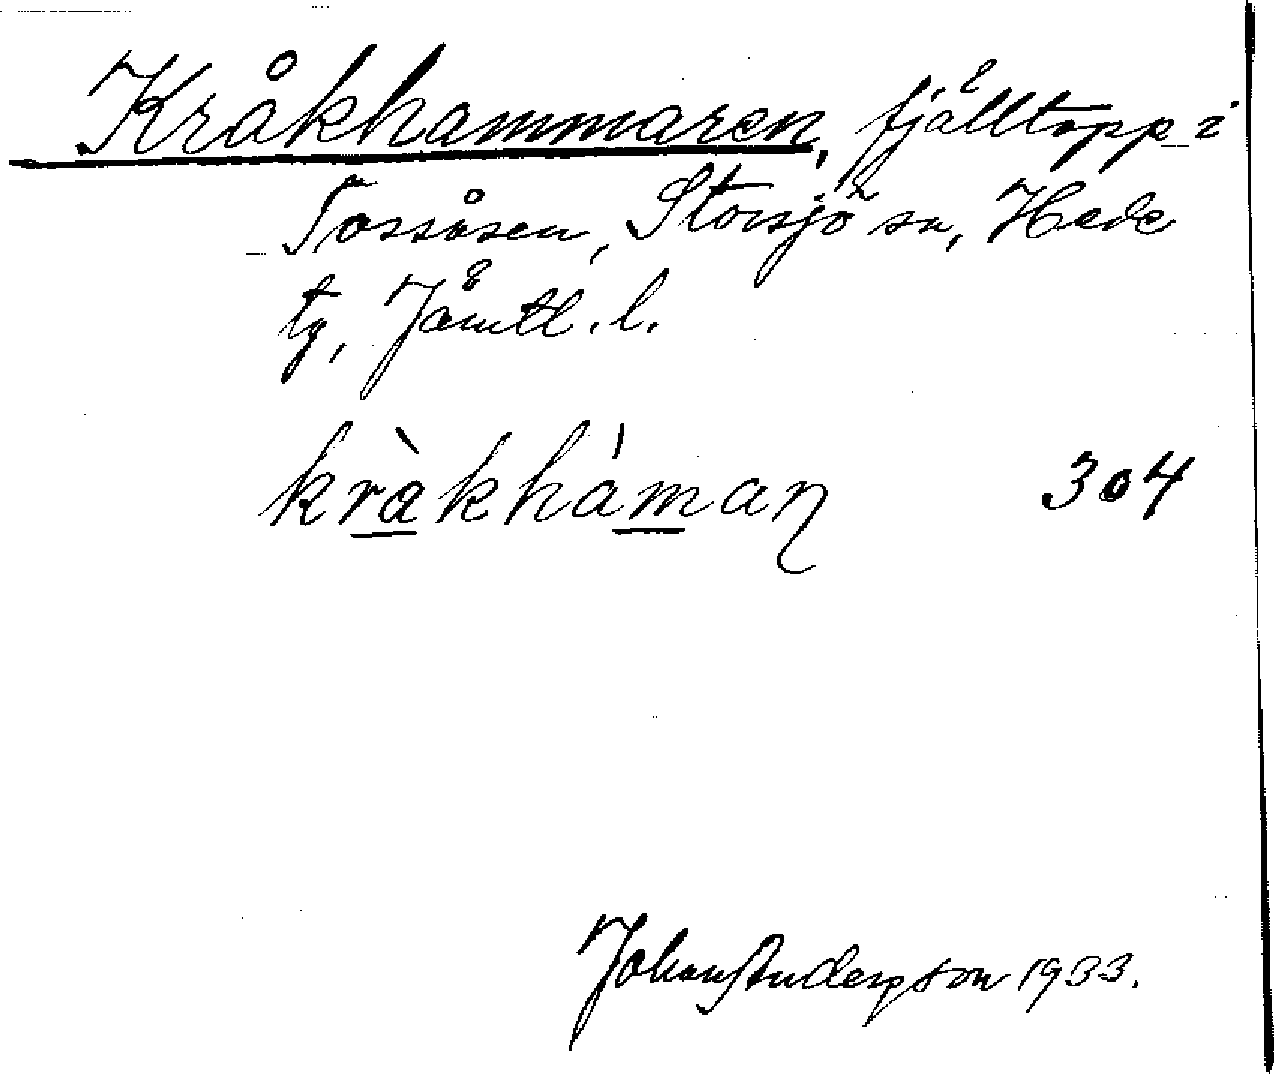 Kråkhammaren, fjälltopp i
Tossåsen, Storsjö sn, Hede
tg, Jämtl. l.
kràkháman 304
Johan Anderson 1933.